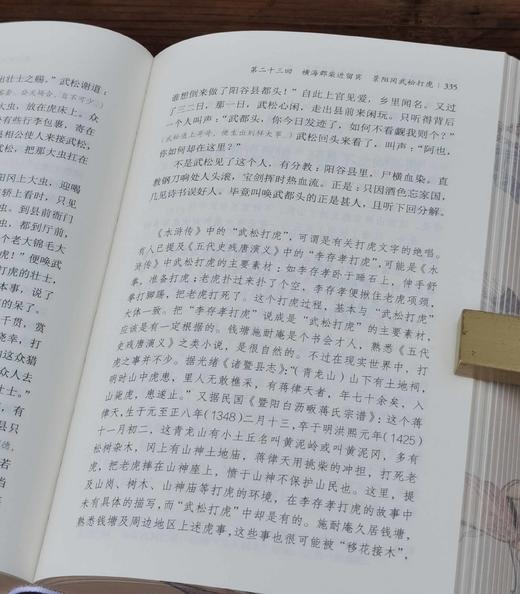 出壮士之赐。”武松谢道：
大虫，放在虎床上。众
许有些行李包裹，寄在
相公使人来接武松，
，把那大虫扛在
冈上大虫，迎喝
轿上看时，只见
到县前衙门
，都到厅前，
个老大锦毛大
虎！”便唤武
打虎的壮士，
本事，说了
的呆了。
千贯，赏
侥幸，打
这众猎
众人去
壮士。”
德，
若
当
第二十三回　横海郡柴进留宾　景阳冈武松打虎 335
谁想倒来做了阳谷县都头！”自此上官见爱，乡里闻名。又过
了三二日，那一日，武松心闲，走出县前来闲玩。只听得背后
一个人叫声：“武都头，你今日发迹了，如何不看觑我则个？”
武松回头来看了，叫声：“阿也，
你如何却在这里？”
不是武松见了这个人，有分教：阳谷县里，尸横血染。直
教钢刀响处人头滚，宝剑挥时热血流。正是：只因酒色忘家国，
几见诗书误好人。毕竟叫唤武都头的正是甚人，且听下回分解。
《水浒传》中的“武松打虎”，可谓是有关打虎文字的绝唱。
有人已提及《五代史残唐演义》中的“李存孝打虎”，可能是《水
浒传》中武松打虎的主要素材；如李存孝卧于踏石上，伸手舒
拳，准备打虎；老虎扑过来扑了个空，李存孝便揪住老虎项颈，
拳打脚踢，把老虎打死了。这个打虎过程，基本与“武松打虎”
大体一致。把“李存孝打虎”说成是“武松打虎”的主要素材，
应该是有一定根据的。钱塘施耐庵是个书会才人，熟悉《五代
史残唐演义》之类小说，是很自然的。不过在现实世界中，打
虎之事并不少。据光绪《诸暨县志》：“（青龙山）山下有土地祠，
明时山中虎患，里人无敢樵采，有蒋律天者，年七十余矣，入
山毙虎，患遂止。”又据民国《暨阳白沥畈蒋氏宗谱》：这个蒋
律天，生于元至正八年(1348)二月十三，卒于明洪熙元年(1425)
十一月初二，这青龙山有小土丘名叫黄泥岭或叫黄泥冈，多有
松树杂木，冈上有山神土地庙，蒋律天用挑柴的冲担，打死老
虎，把老虎摔在山神座上，愤于山神不保护山民也。这里，提
及山岗、树木、山神庙等打虎的环境，在李存孝打虎的故事中
未有具体的描写，而“武松打虎”中却是有的。施耐庵久居钱塘，
熟悉钱塘及周边地区上述虎事，这些事也很可能被“移花接木”，